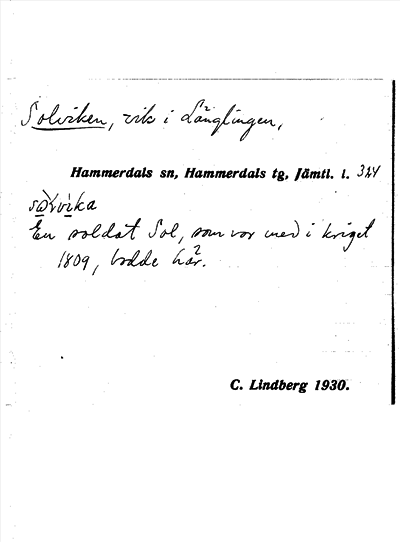 Solviken, vik i Långlingen,
Hammerdals sn, Hammerdals tg, Jämtl. l. 324
En soldat Sol, som var med i kriget
1809, bodde här.
C. Lindberg 1930.